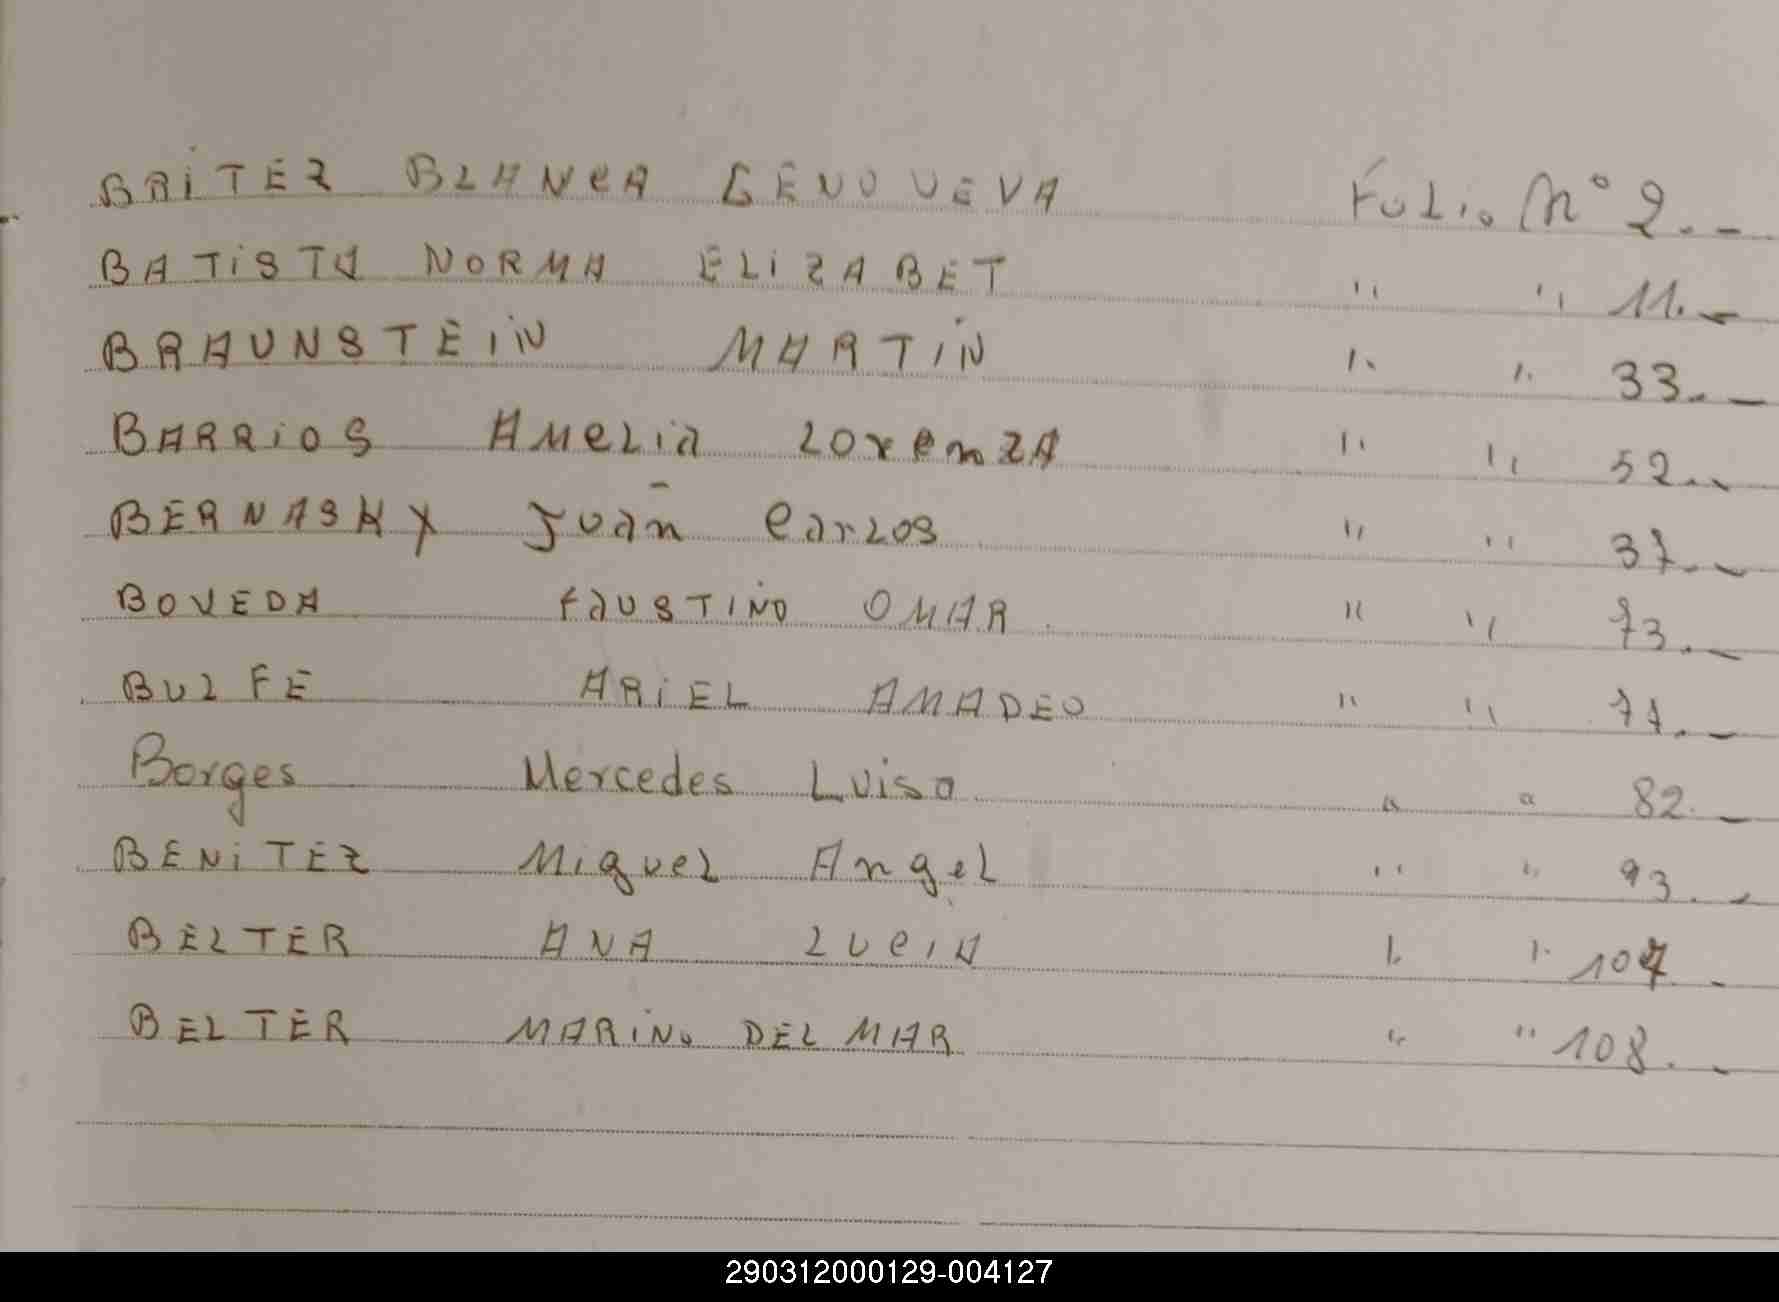 BRITEZ BLANCA GENOVEVA Folio Nº 2.-
BATISTA NORMA ELIZABET " " 11.-
BRAUNSTEIN MARTIN " " 33.-
BARRIOS AMELIA LORENZA " " 52.-
BERNASKY Juan Carlos " " 37.-
BOVEDA FAUSTINO OMAR " " 73.-
BULFE ARIEL AMADEO " " 71.-
Borges Mercedes Luisa " " 82.-
BENITEZ Miguel Angel " " 93.-
BELTER ANA LUCIA " " 107.-
BELTER MARINO DEL MAR " " 108.-
290312000129-004127